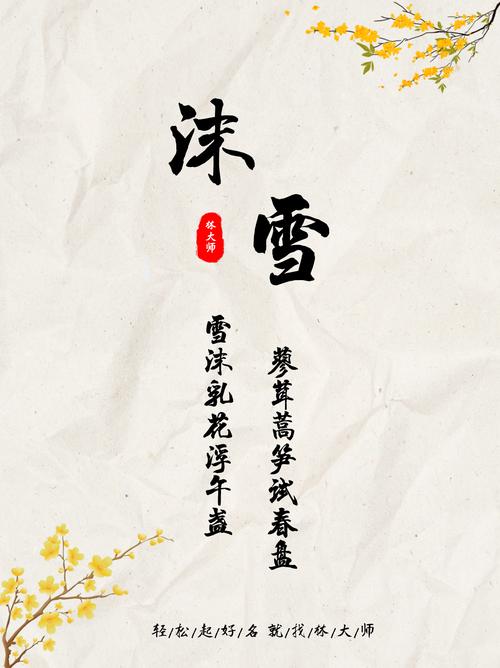 沫
雪
林大师
雪沫乳花浮午盏
蓼茸蒿笋试春盘
轻/松/起/好/名 就/找/林/大/师